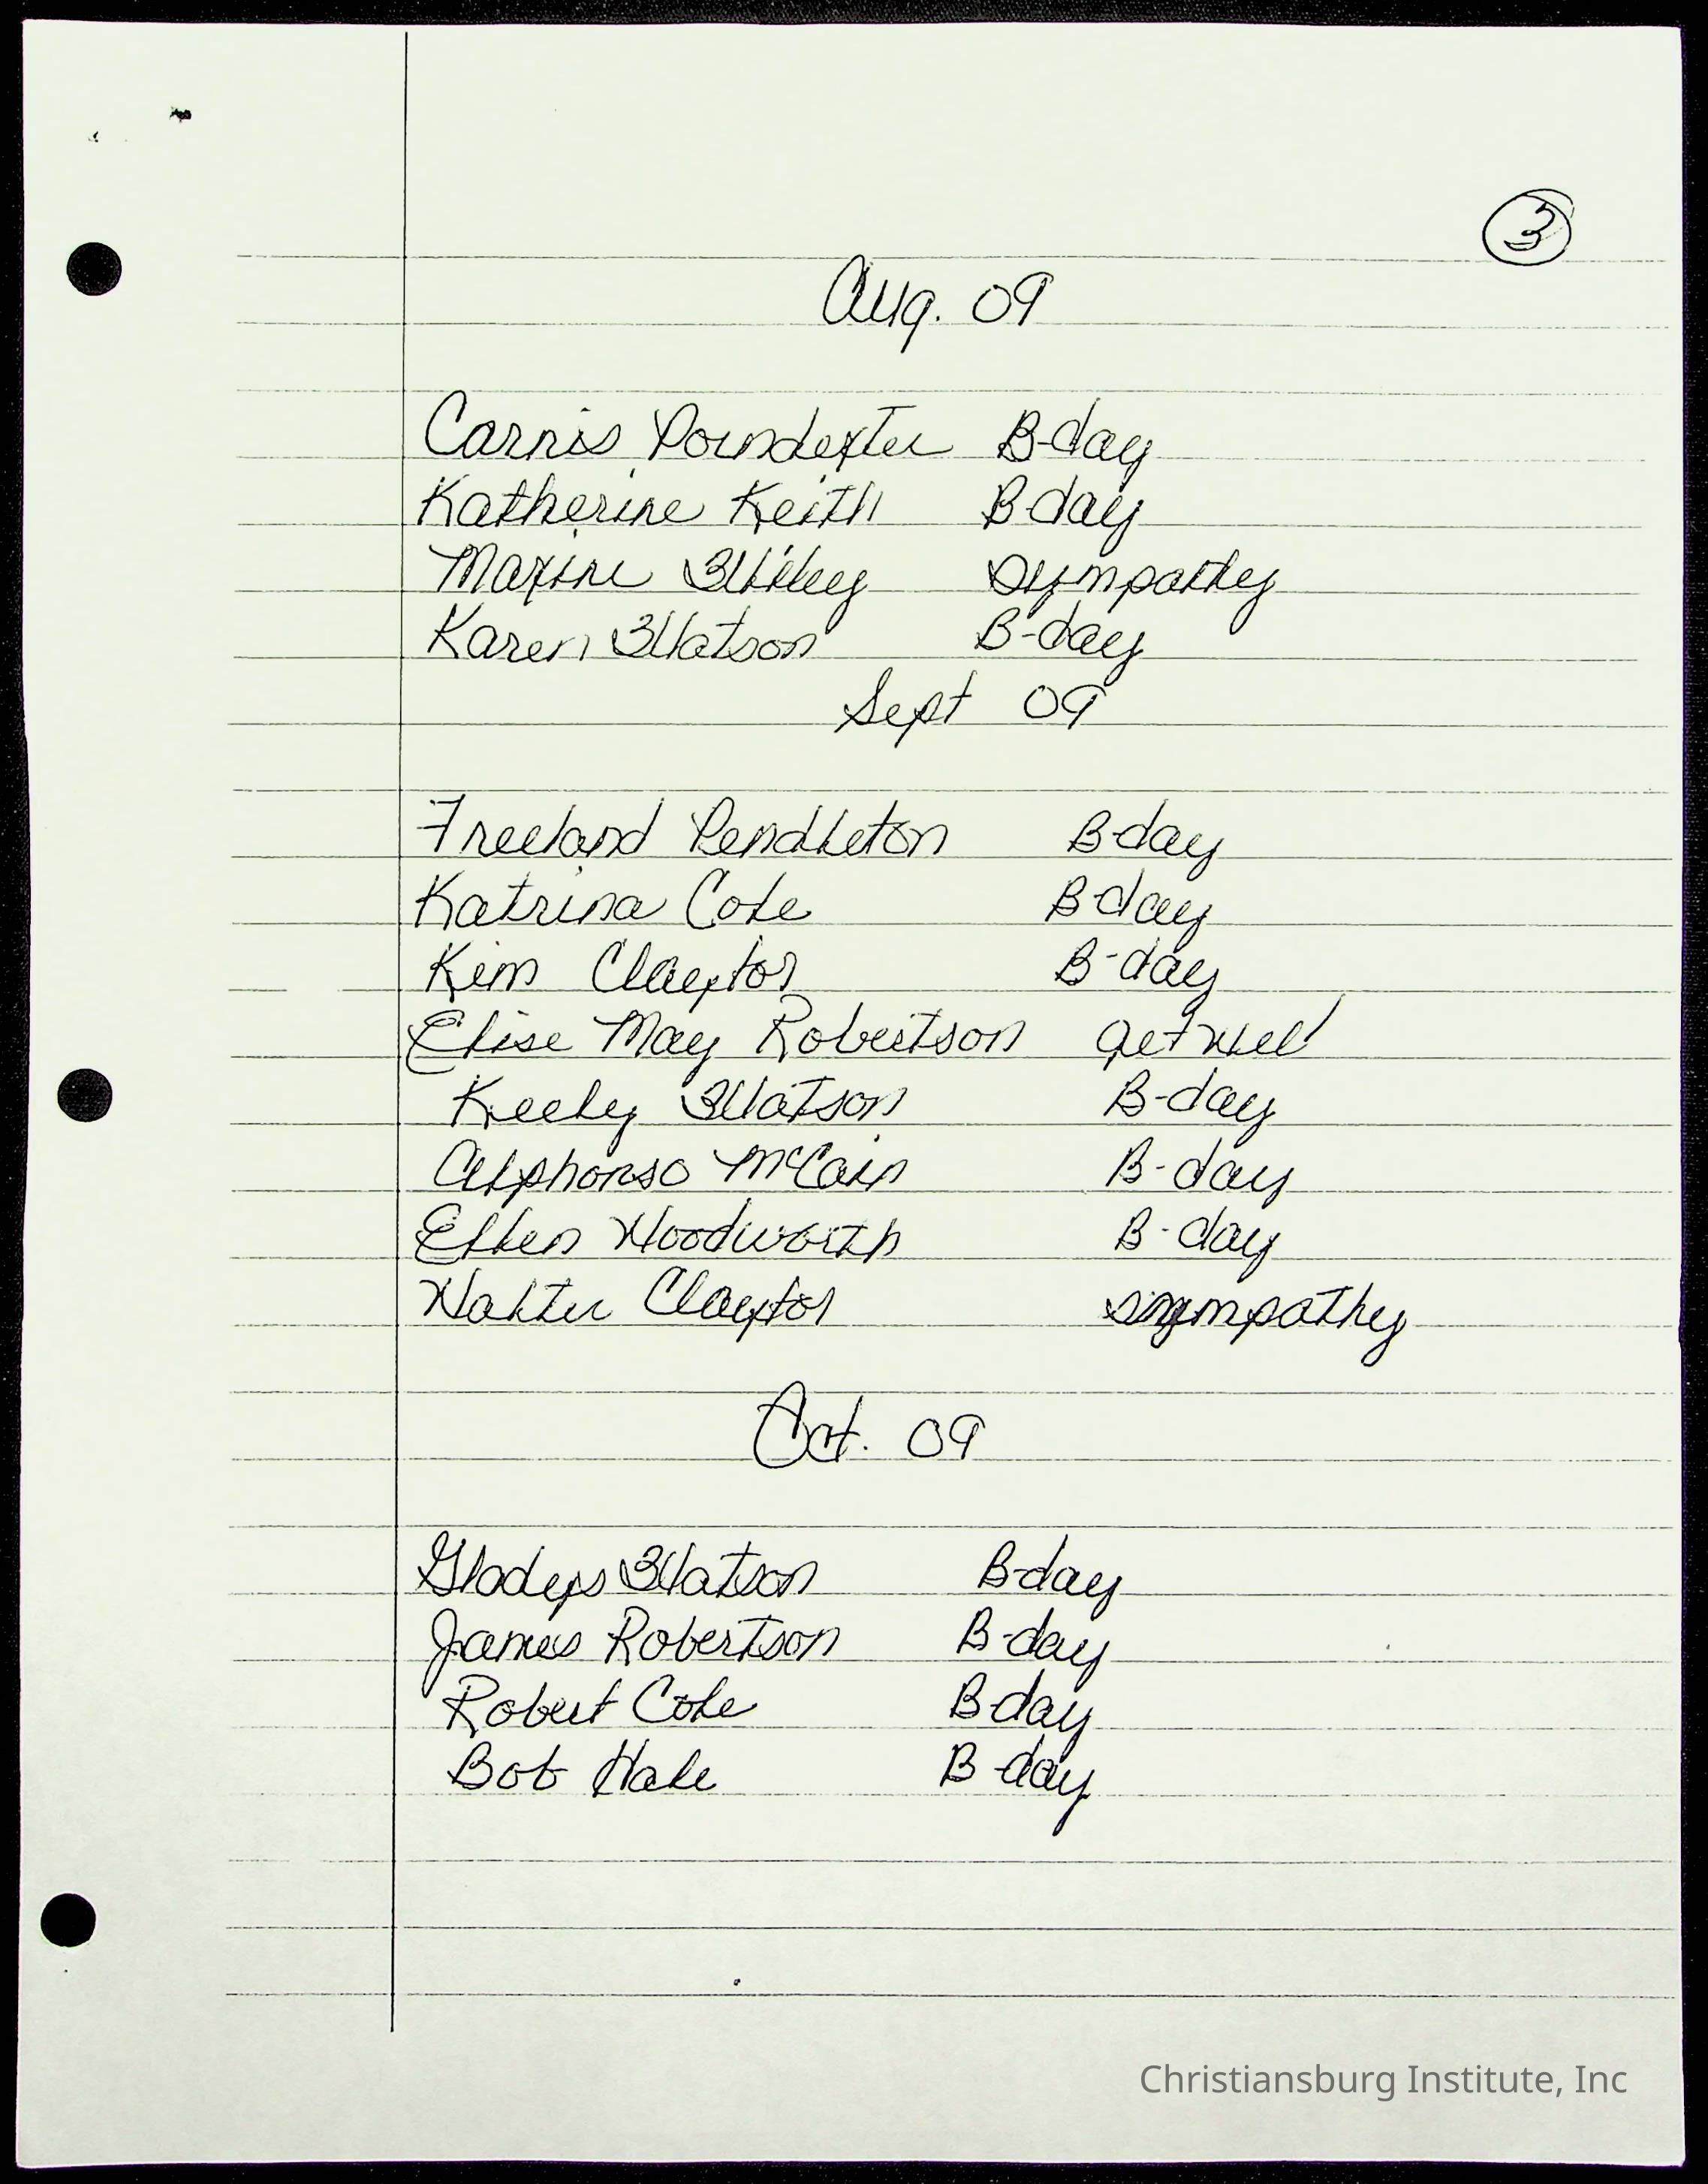 3
Aug. 09
Carnis Poindexter B-day
Katherine Keith B-day
Maxine Wiley sympathy
Karen Watson B-day
Sept 09
Freeland Pendleton B-day
Katrina Cole B-day
Kim Claytor B-day
Elise May Robertson get well
Keely Watson B-day
Alphonso McCain B-day
Ellen Woodworth B-day
Walter Claytor sympathy
Oct. 09
Gladys Watson B-day
James Robertson B-day
Robert Cole B-day
Bob Hale B-day
Christiansburg Institute, Inc